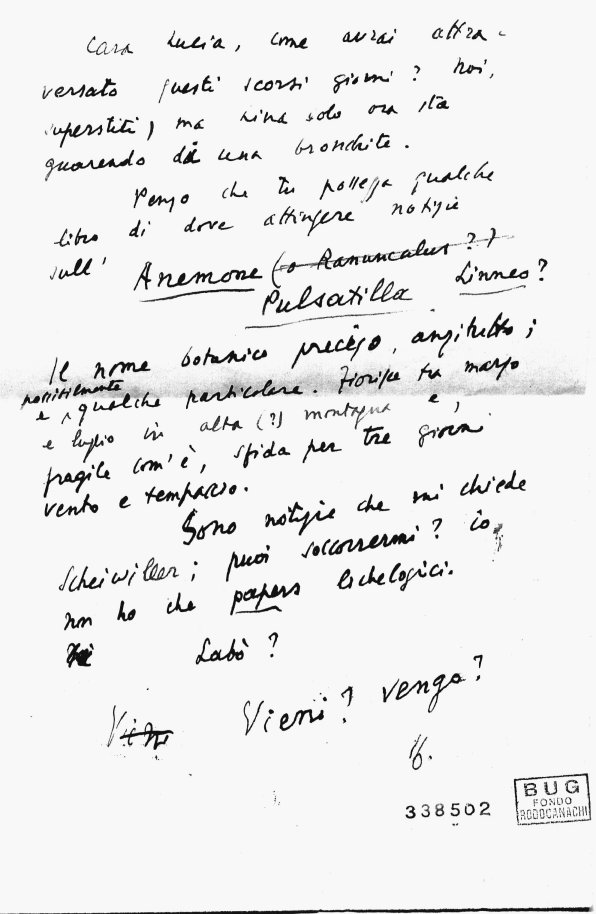 Cara Lucia, come avrai attra-
versato questi scorsi giorni? Noi,
superstiti, ma Lina solo ora sta
guarendo da una bronchite.
Penso che tu possegga qualche
libro di dove attingere notizie
sull'
Anemone (o Ranunculus?)
Pulsatilla Linneo?
Il nome botanico preciso, anzitutto;
possibilmente
e qualche particolare. Fiorisce tra marzo
e luglio in alta (?) montagna e,
fragile com'è, sfida per tre giorni
vento e tempaccio.
Sono notizie che mi chiede
Scheiwiller; puoi soccorrermi? io
non ho che papers lichelogici.
Labò?
Vieni? vengo?
338502
BUG
FONDO
RODOCANACHI